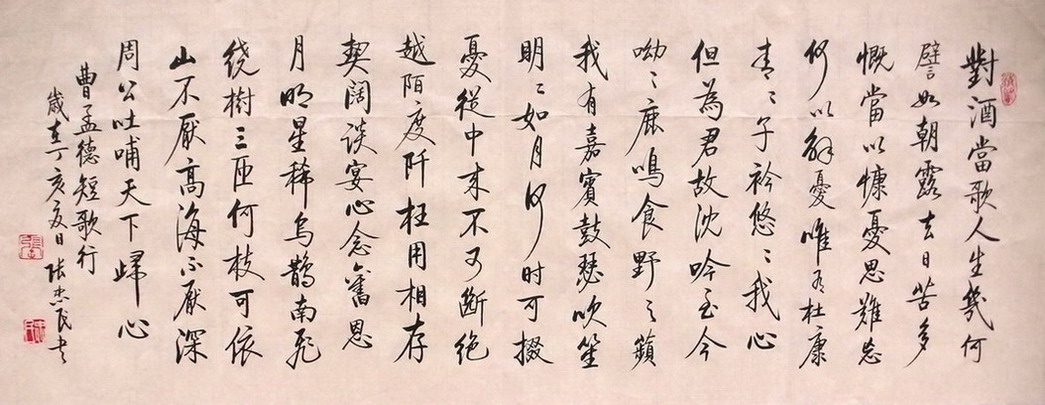 對酒當歌人生幾何
譬如朝露去日苦多
慨當以慷憂思難忘
何以解憂唯有杜康
青〻子衿悠〻我心
但為君故沈吟至今
呦〻鹿鳴食野之蘋
我有嘉賓鼓瑟吹笙
明〻如月何时可掇
憂從中来不可斷绝
越陌度阡枉用相存
契闊谈宴心念舊恩
月明星稀乌鹊南飛
绕樹三匝何枝可依
山不厭高海不厭深
周公吐哺天下歸心
曹孟德短歌行
歲在丁亥夏日張杰民书